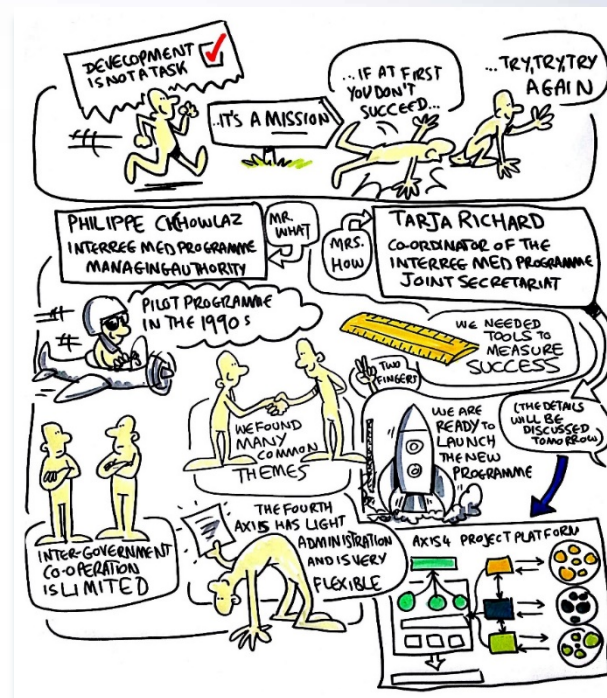 DEVELOPMENT
IS NOT A TASK
...IT'S A MISSION
...IF AT FIRST
YOU DON'T
SUCCEED...
...TRY, TRY, TRY
AGAIN
PHILIPPE CHOWLAZ
INTERREG MED PROGRAMME
MANAGING AUTHORITY
MR.
WHAT
MRS.
HOW
TARJA RICHARD
CO-ORDINATOR OF THE
INTERREG MED PROGRAMME
JOINT SECRETARIAT
PILOT PROGRAMME
IN THE 1990s
WE NEEDED
TOOLS TO
MEASURE
SUCCESS
TWO
FINGERS
WE FOUND
MANY
COMMON
THEMES
WE ARE
READY TO
LAUNCH
THE NEW
PROGRAMME
(THE DETAILS
WILL BE
DISCUSSED
TOMORROW)
INTER-GOVERNMENT
CO-OPERATION
IS LIMITED
THE FOURTH
AXIS HAS LIGHT
ADMINISTRATION
AND IS VERY
FLEXIBLE
AXIS 4 PROJECT PLATFORM